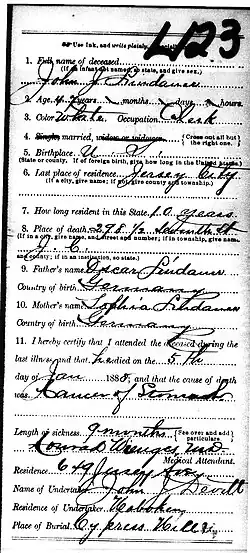 423
Use Ink, and write plainly,
1. Full name of deceased
(If an infant not named, so state, and give sex.)
John J. Lindauer
2. Age, years, months, days, hours.
3. Color White Occupation Clerk
4. Single, married, widow or widower. {Cross out all but the right one.
5. Birthplace U S
(State or county. If of foreign birth, give how long in the United States.)
6. Last place of residence Jersey City
(If a city, give name; if not, give county and township.)
7. How long resident in this State, 10 years
8. Place of death 298 1/2 Seventh St
(If in a city, give name, and street and number; if in township, give name,
J. C.
and county; if in an institution, so state.)
9. Father's name Oscar Lindauer
Country of birth Germany
10. Mother's name Sophia Lindauer
Country of birth Germany
11. I hereby certify that I attended the deceased during the
last illness, and that he died on the 5th
day of Jan 1888, and that the cause of death
was Cancer of Stomach
Length of sickness. 9 months {See over and add particulars.
Conrad M.D.
Medical Attendant.
Residence 649 Jersey
Name of Undertaker John J Devitt
Residence of Undertaker Hoboken
Place of Burial Cypress Hills